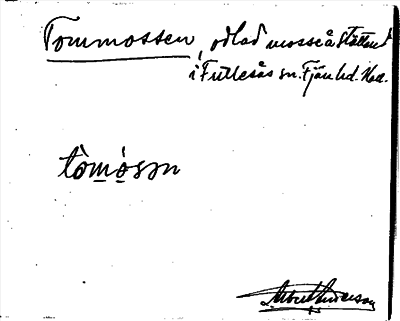 Tommossen, odlad mosse å Stättared
i Frillesås sn. Fjäre hd. Hal.
tòmósən
Albert Andersson